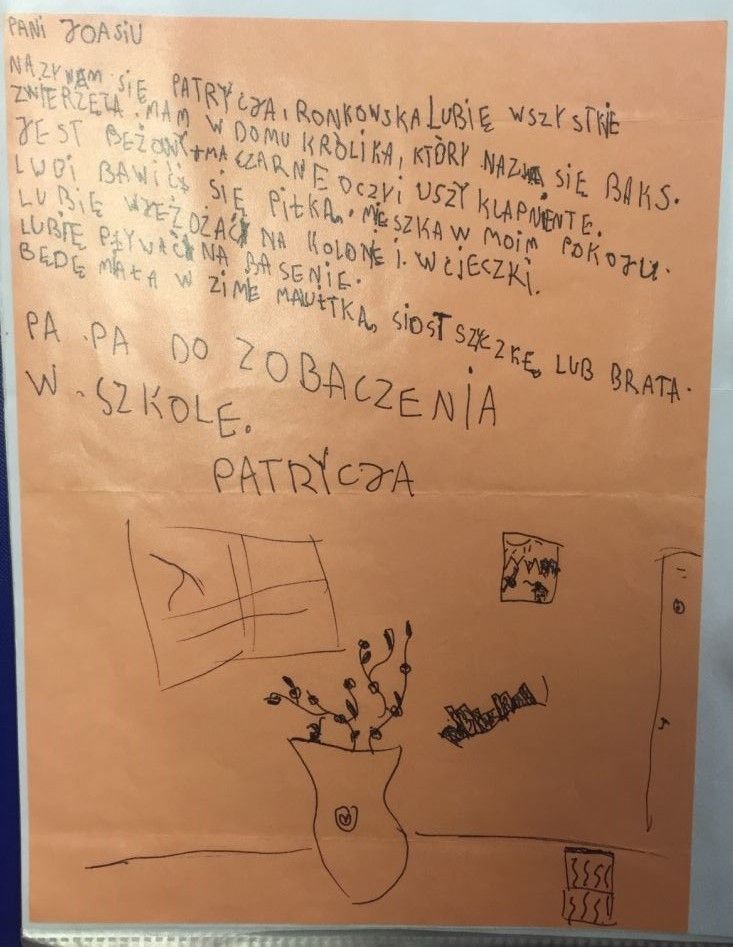 PANI JOASIU
NAZYWAM SIĘ PATRYCJA, RONKOWSKA LUBIĘ WSZYSTKIE
ZWIERZĘTA. MAM W DOMU KRÓLIKA, KTÓRY NAZWA SIĘ BAKS.
JEST BEŻOWY, MA CZARNE OCZY I USZY KLAPNIENTE.
LUDI BAWIĆ SIĘ PIŁKĄ. MIESZKA W MOIM POKOJU.
LUBIĘ NA KOLONIE I WCIECZKI.
LUBIĘ PŁYWAĆ NA BASENIE.
BĘDĘ MIAŁA W ZIMĘ SIOSTSZYCZKĘ, LUB BRATA.
PA. PA DO ZOBACZENIA
W. SZKOLE.
PATRYCJA